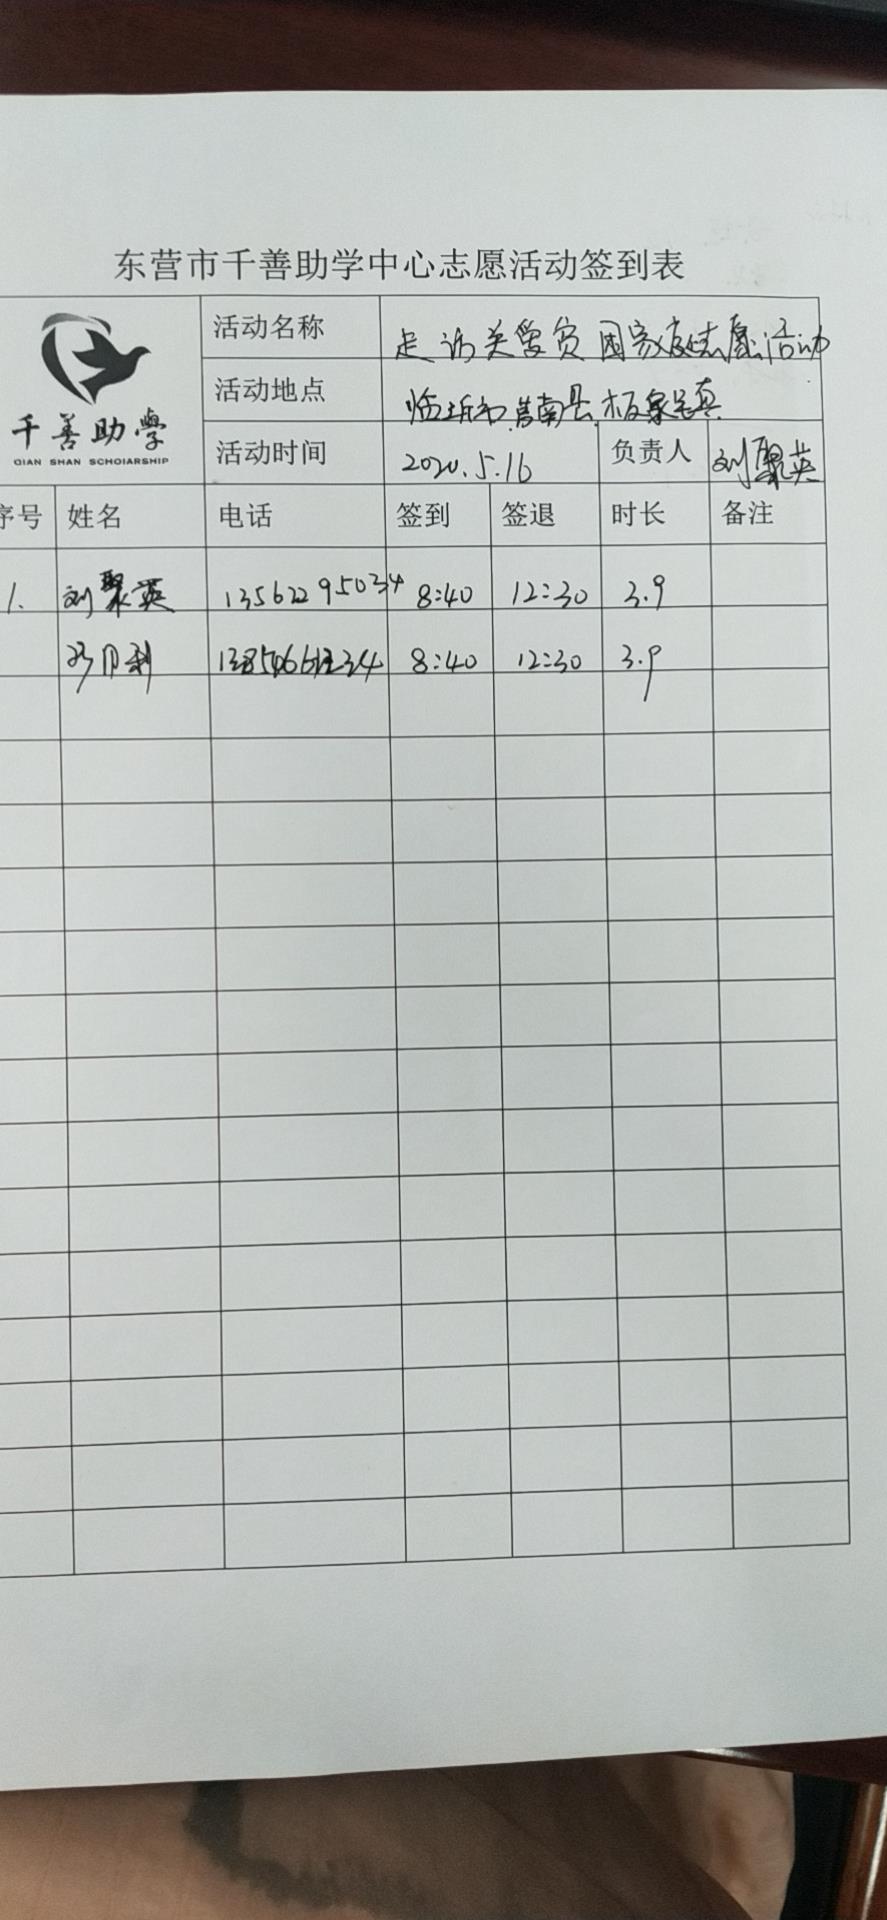 东营市千善助学中心志愿活动签到表
千善助學
QIAN SHAN SCHOIARSHIP
活动名称 走访关爱贫困家庭志愿活动
活动地点 临沂市莒南县板泉镇
活动时间 2020.5.16 负责人 刘聚英
序号 姓名 电话 签到 签退 时长 备注
1. 刘聚英 13562295034 8:40 12:30 3.9
8:40 12:30 3.9